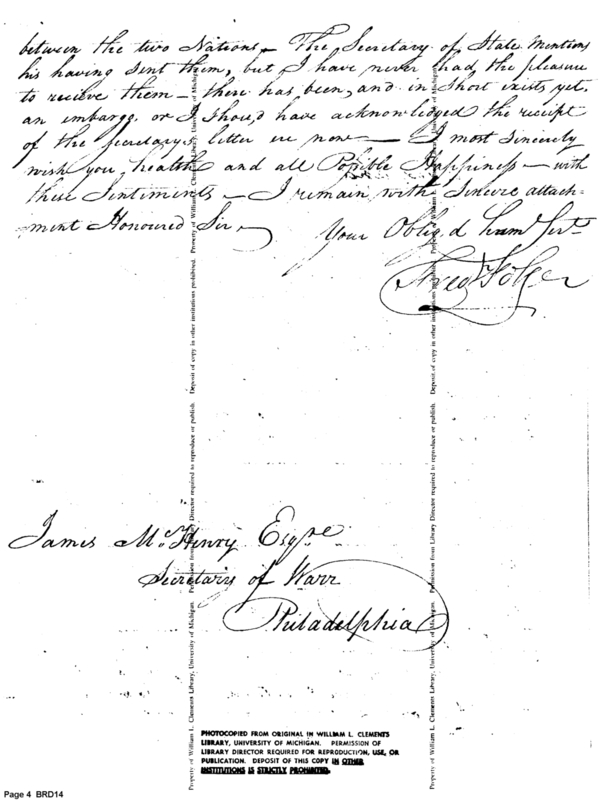 between the two Nations — The Secretary of State mentions
his having sent them, but I have never had the pleasure
to recieve them — there has been, and in short exists yet,
an embargo. or I shou,d have acknowledged the receipt
of the secretarys letter ere now — I most sincerely
wish you, health and all Possible Happiness — with
these Sentiments — I remain with Sincere attach=
ment Honoured Sir — Your Oblig,d hum Servt
Fred Folger
James McHenry Esqre
Secretary of Warr
Philadelphia
Property of William L. Clements Library, University of Michigan. Permission from Library Director required to reproduce or publish. Deposit of copy in other institutions prohibited.
Property of William L. Clements Library, University of Michigan. Permission from Library Director required to reproduce or publish. Deposit of copy in other institutions prohibited.
PHOTOCOPIED FROM ORIGINAL IN WILLIAM L. CLEMENTS
LIBRARY, UNIVERSITY OF MICHIGAN. PERMISSION OF
LIBRARY DIRECTOR REQUIRED FOR REPRODUCTION, USE, OR
PUBLICATION. DEPOSIT OF THIS COPY IN OTHER
INSTITUTIONS IS STRICTLY PROHIBITED.
Page 4 BRD14